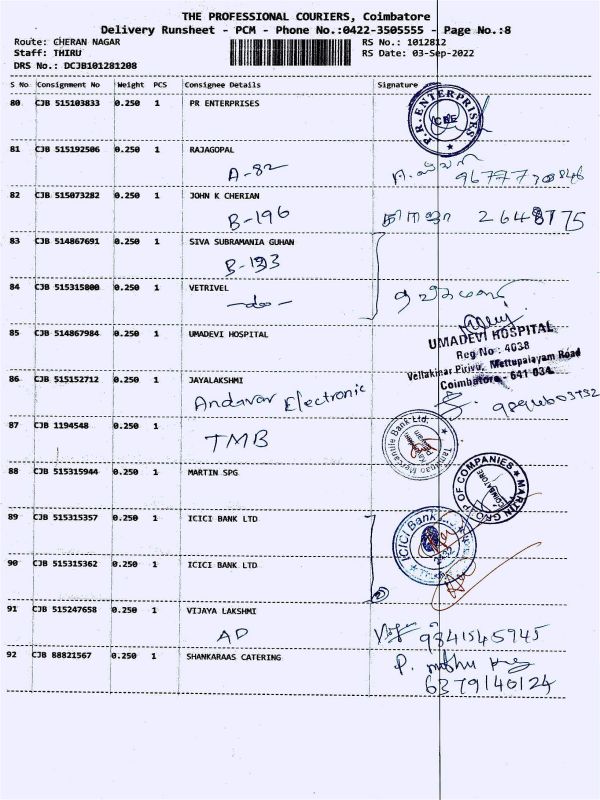 THE PROFESSIONAL COURIERS, Coimbatore
Delivery Runsheet - PCM - Phone No.:0422-3505555 - Page No.:8
Route: CHERAN NAGAR RS No.: 1012812
Staff: THIRU RS Date: 03-Sep-2022
DRS No.: DCJB101281208
S No Consignment No Weight PCS Consignee Details Signature
80 CJB 515103833 0.250 1 PR ENTERPRISES
P.R. ENTERPRISES CBE
81 CJB 515192506 0.250 1 RAJAGOPAL
A-82
82 CJB 515073282 0.250 1 JOHN K CHERIAN
B-196
83 CJB 514867691 0.250 1 SIVA SUBRAMANIA GUHAN
84 CJB 515315800 0.250 1 VETRIVEL
-do-
85 CJB 514867984 0.250 1 UMADEVI HOSPITAL
UMADEVI HOSPITAL
Reg No : 4038
Vellakinar Pirivu, Mettupalayam Road
Coimbatore - 641 034.
86 CJB 515152712 0.250 1 JAYALAKSHMI
Andavar Electronic
87 CJB 1194548 0.250 1
TMB
Tamilnad Mercantile Bank Ltd.
88 CJB 515315944 0.250 1 MARTIN SPG
MARTIN GROUP OF COMPANIES
COIMBATORE
89 CJB 515315357 0.250 1 ICICI BANK LTD
ICICI Bank Ltd
90 CJB 515315362 0.250 1 ICICI BANK LTD
91 CJB 515247658 0.250 1 VIJAYA LAKSHMI
AP 9841545945
92 CJB 88821567 0.250 1 SHANKARAAS CATERING
6379140124